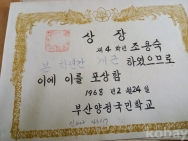 상장
제 4 학년 조용숙
하였으므로
이에 이를 포상함
1968년 2월 24일
부산양정국민학교
kobay